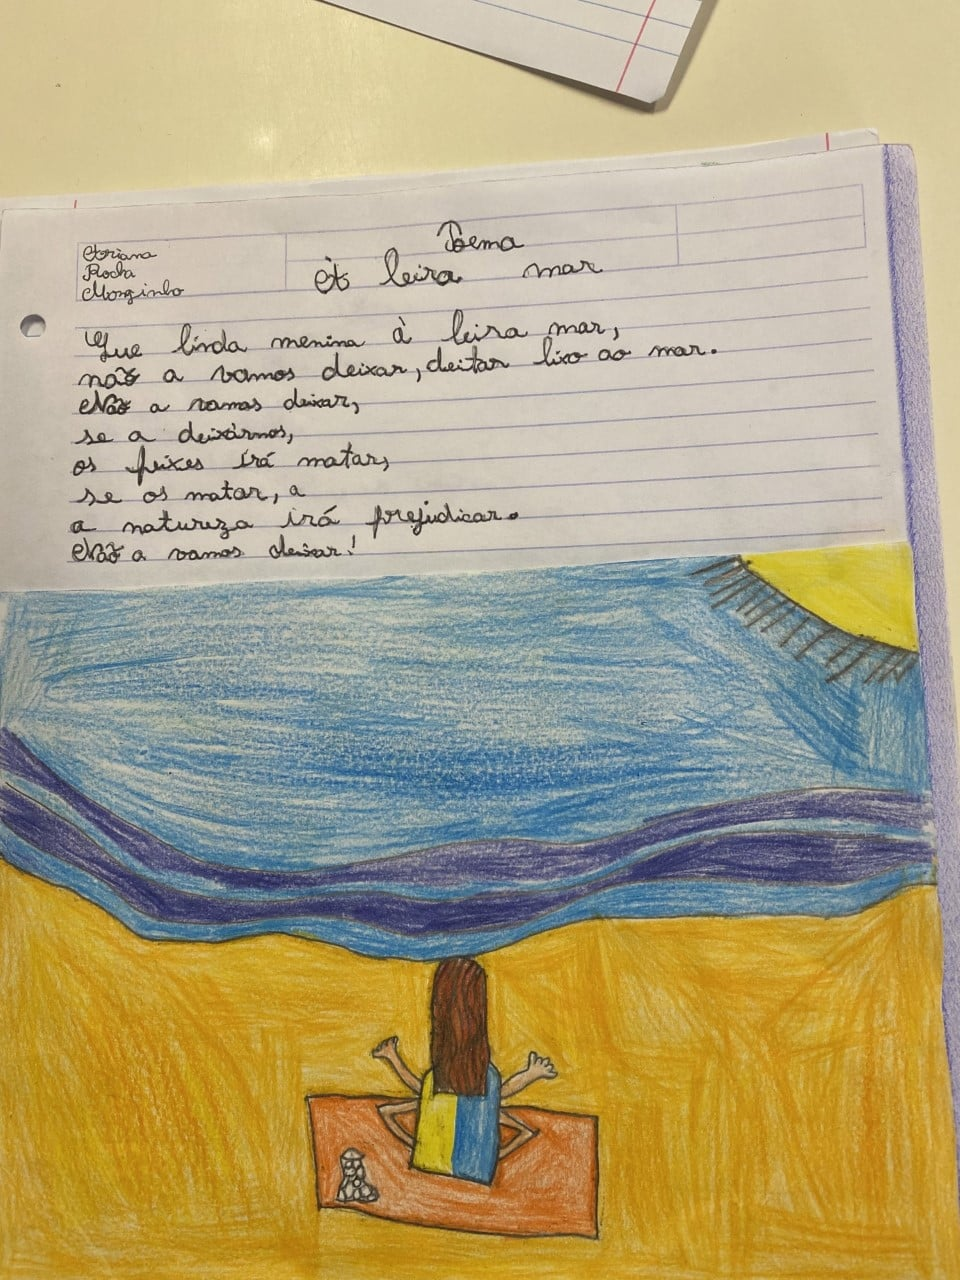 Poema
Ariana
Rocha
Morginho
À beira mar
Que linda menina à beira mar,
não a vamos deixar, deitar lixo ao mar.
Não a vamos deixar,
se a deixármos,
os peixes irá matar,
se os matar, a
a natureza irá prejudicar.
Não a vamos deixar!